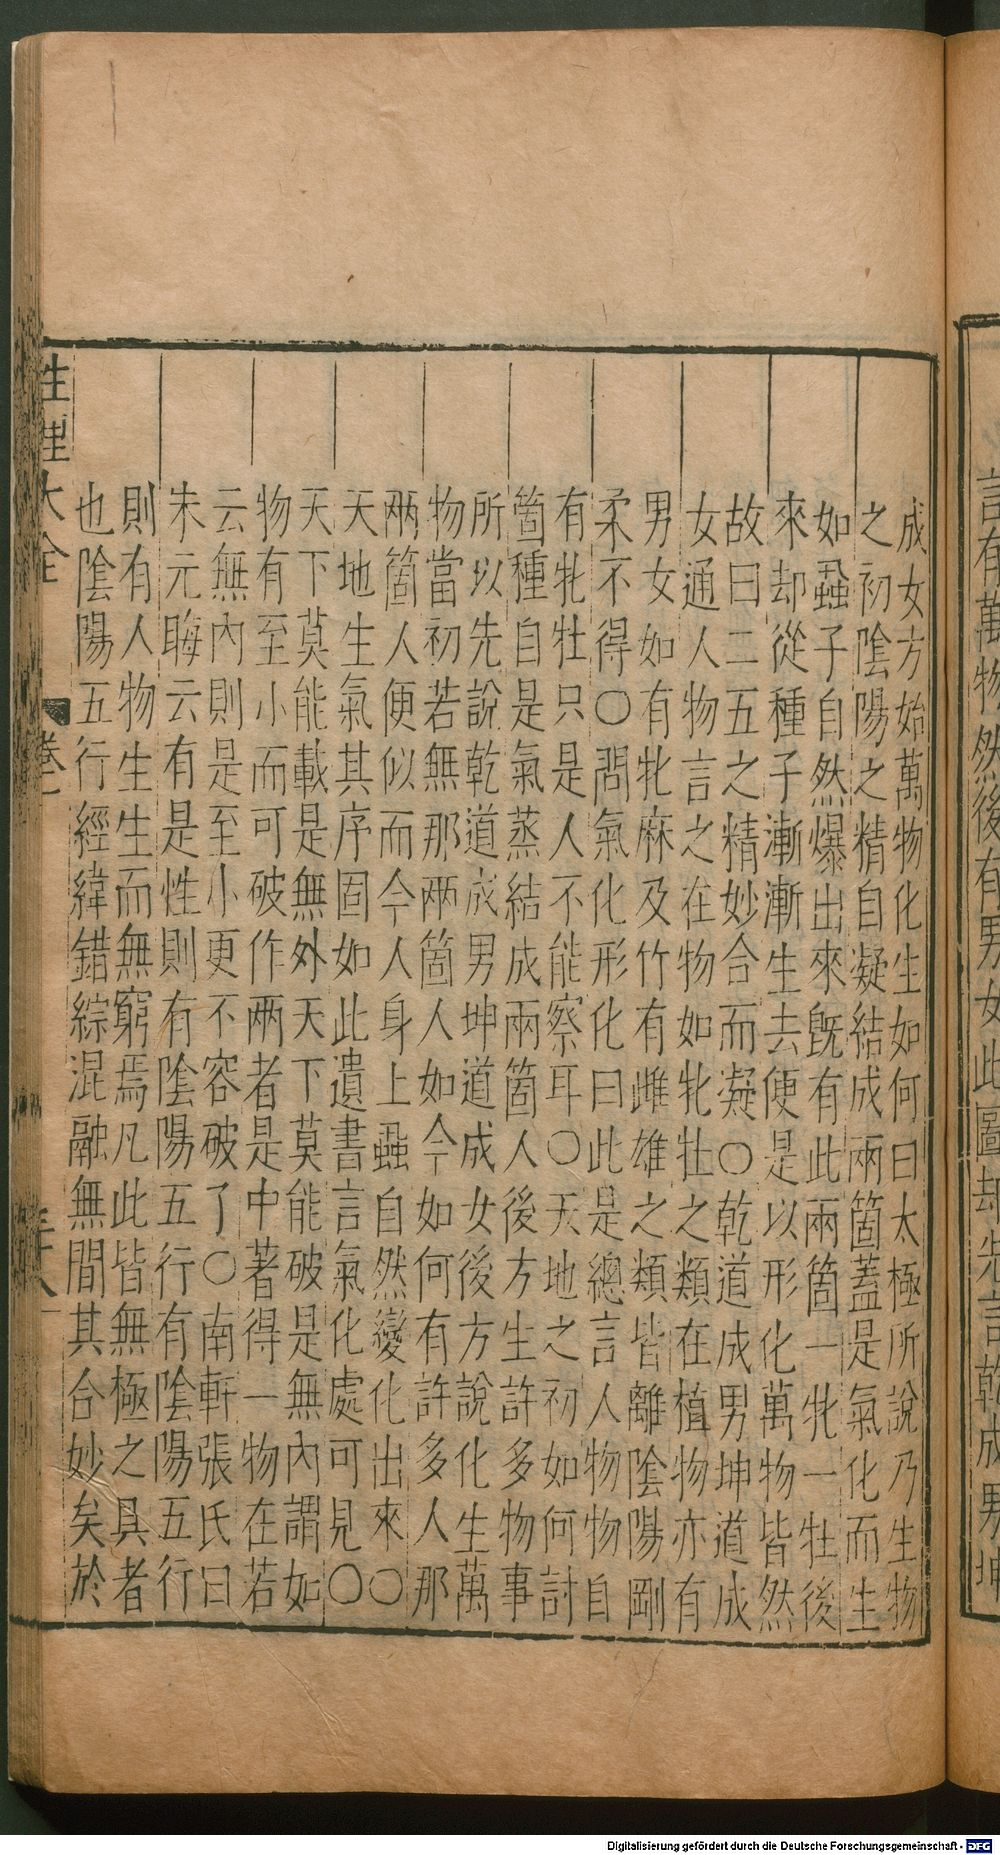 言有萬物然後有男女此圖却先言乾成男坤
成女方始萬物化生如何曰太極所說乃生物
之初陰陽之精自凝結成兩箇蓋是氣化而生
如蝨子自然爆出來既有此兩箇一牝一牡後
來却從種子漸漸生去便是以形化萬物皆然
故曰二五之精妙合而凝〇乾道成男坤道成
女通人物言之在物如牝牡之類在植物亦有
男女如有牝麻及竹有雌雄之類皆離陰陽剛
柔不得〇問氣化形化曰此是總言人物物自
有牝牡只是人不能察耳〇天地之初如何討
箇種自是氣蒸結成兩箇人後方生許多物事
所以先說乾道成男坤道成女後方說化生萬
物當初若無那兩箇人如今如何有許多人那
兩箇人便似而今人身上蝨自然變化出來〇
天地生氣其序固如此遺書言氣化處可見〇
天下莫能載是無外天下莫能破是無內謂如
物有至小而可破作兩者是中著得一物在若
云無內則是至小更不容破了〇南軒張氏曰
朱元晦云有是性則有陰陽五行有陰陽五行
則有人物生生而無窮焉凡此皆無極之具者
也陰陽五行經緯錯綜混融無間其合妙矣於
性理大全 卷一
Digitalisierung gefördert durch die Deutsche Forschungsgemeinschaft - DFG